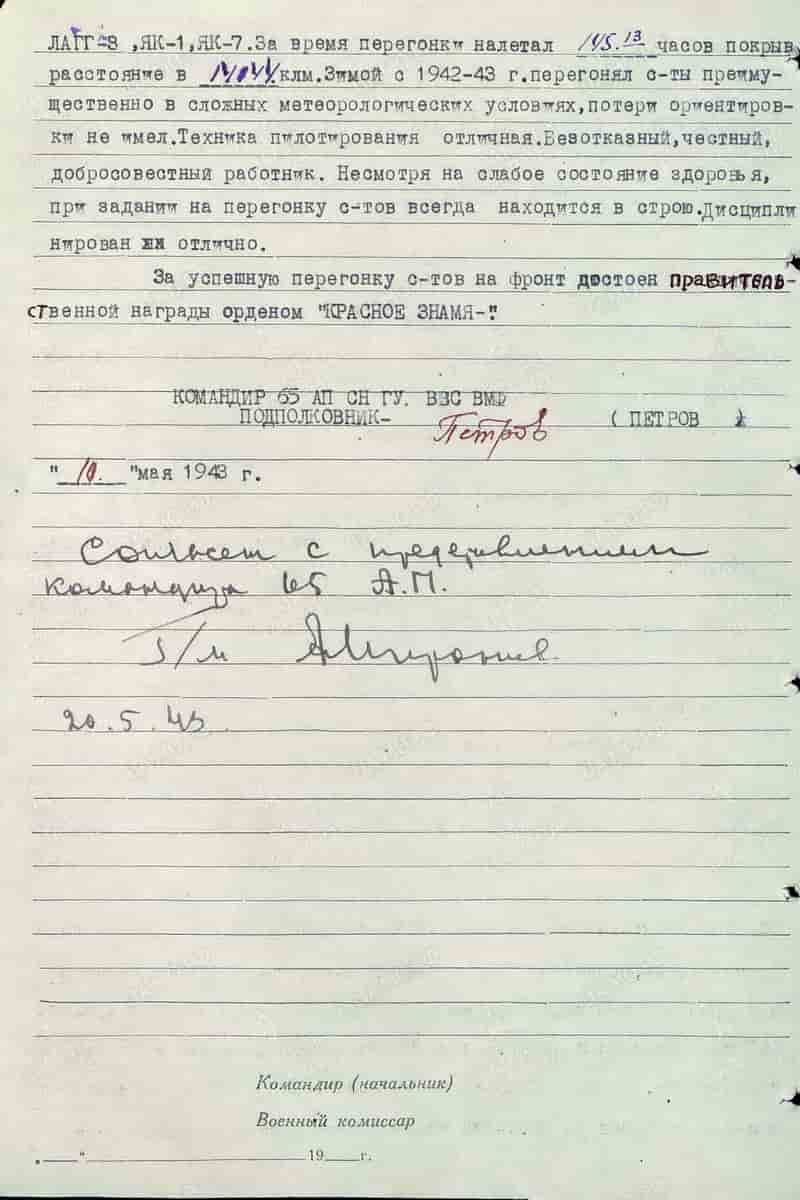 ЛАГГ-3 ,ЯК-1,ЯК-7.За время перегонки налетал 145.13 часов покрыв
расстояние в клм.Зимой с 1942-43 г.перегонял с-ты преиму-
щественно в сложных метеорологических условиях,потери ориентиров-
ки не имел.Техника пилотирования отличная.Безотказный,честный,
добросовестный работник. Несмотря на слабое состояние здоровья,
при задании на перегонку с-тов всегда находится в строю.Дисципли
нирован отлично.
За успешную перегонку с-тов на фронт достоен правитель-
ственной награды орденом "КРАСНОЕ ЗНАМЯ-".
КОМАНДИР 65 АП СН ГУ. ВВС ВМФ
ПОДПОЛКОВНИК- Петров ( ПЕТРОВ )
"10." мая 1943 г.
Согласен с представлением
командира 65 А.П.
20.5.43
Командир (начальник)
Военный комиссар
„___“ 19___г.